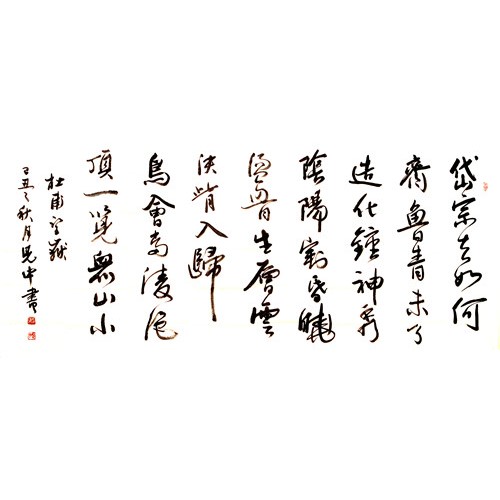 岱宗夫如何
齊魯青未了
造化鐘神秀
陰陽割昏曉
盪胷生層雲
決眥入歸
鳥會當凌絕
頂一覽眾山小
杜甫望嶽
己丑之秋月中書